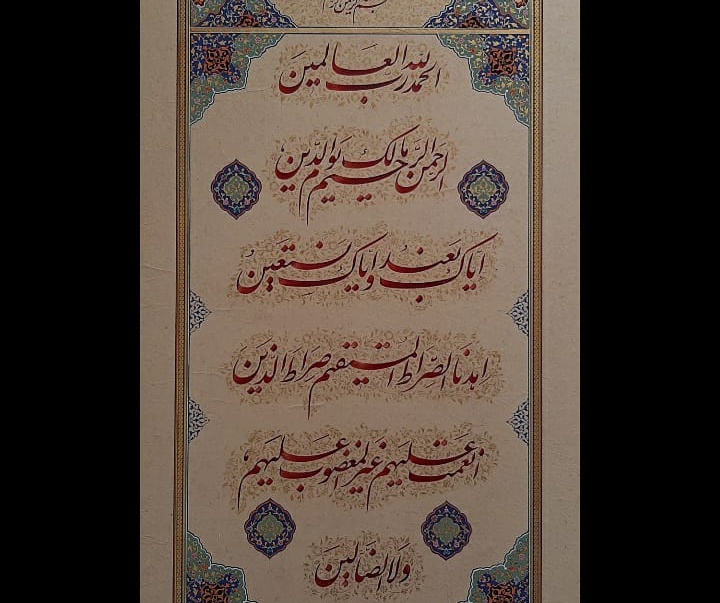 الحمد لله رب العالمین
الرحمن الرحیم مالک یوم الدین
ایاک نعبد و ایاک نستعین
اهدنا الصراط المستقیم صراط الذین
انعمت علیهم غیر المغضوب علیهم
ولا الضالین